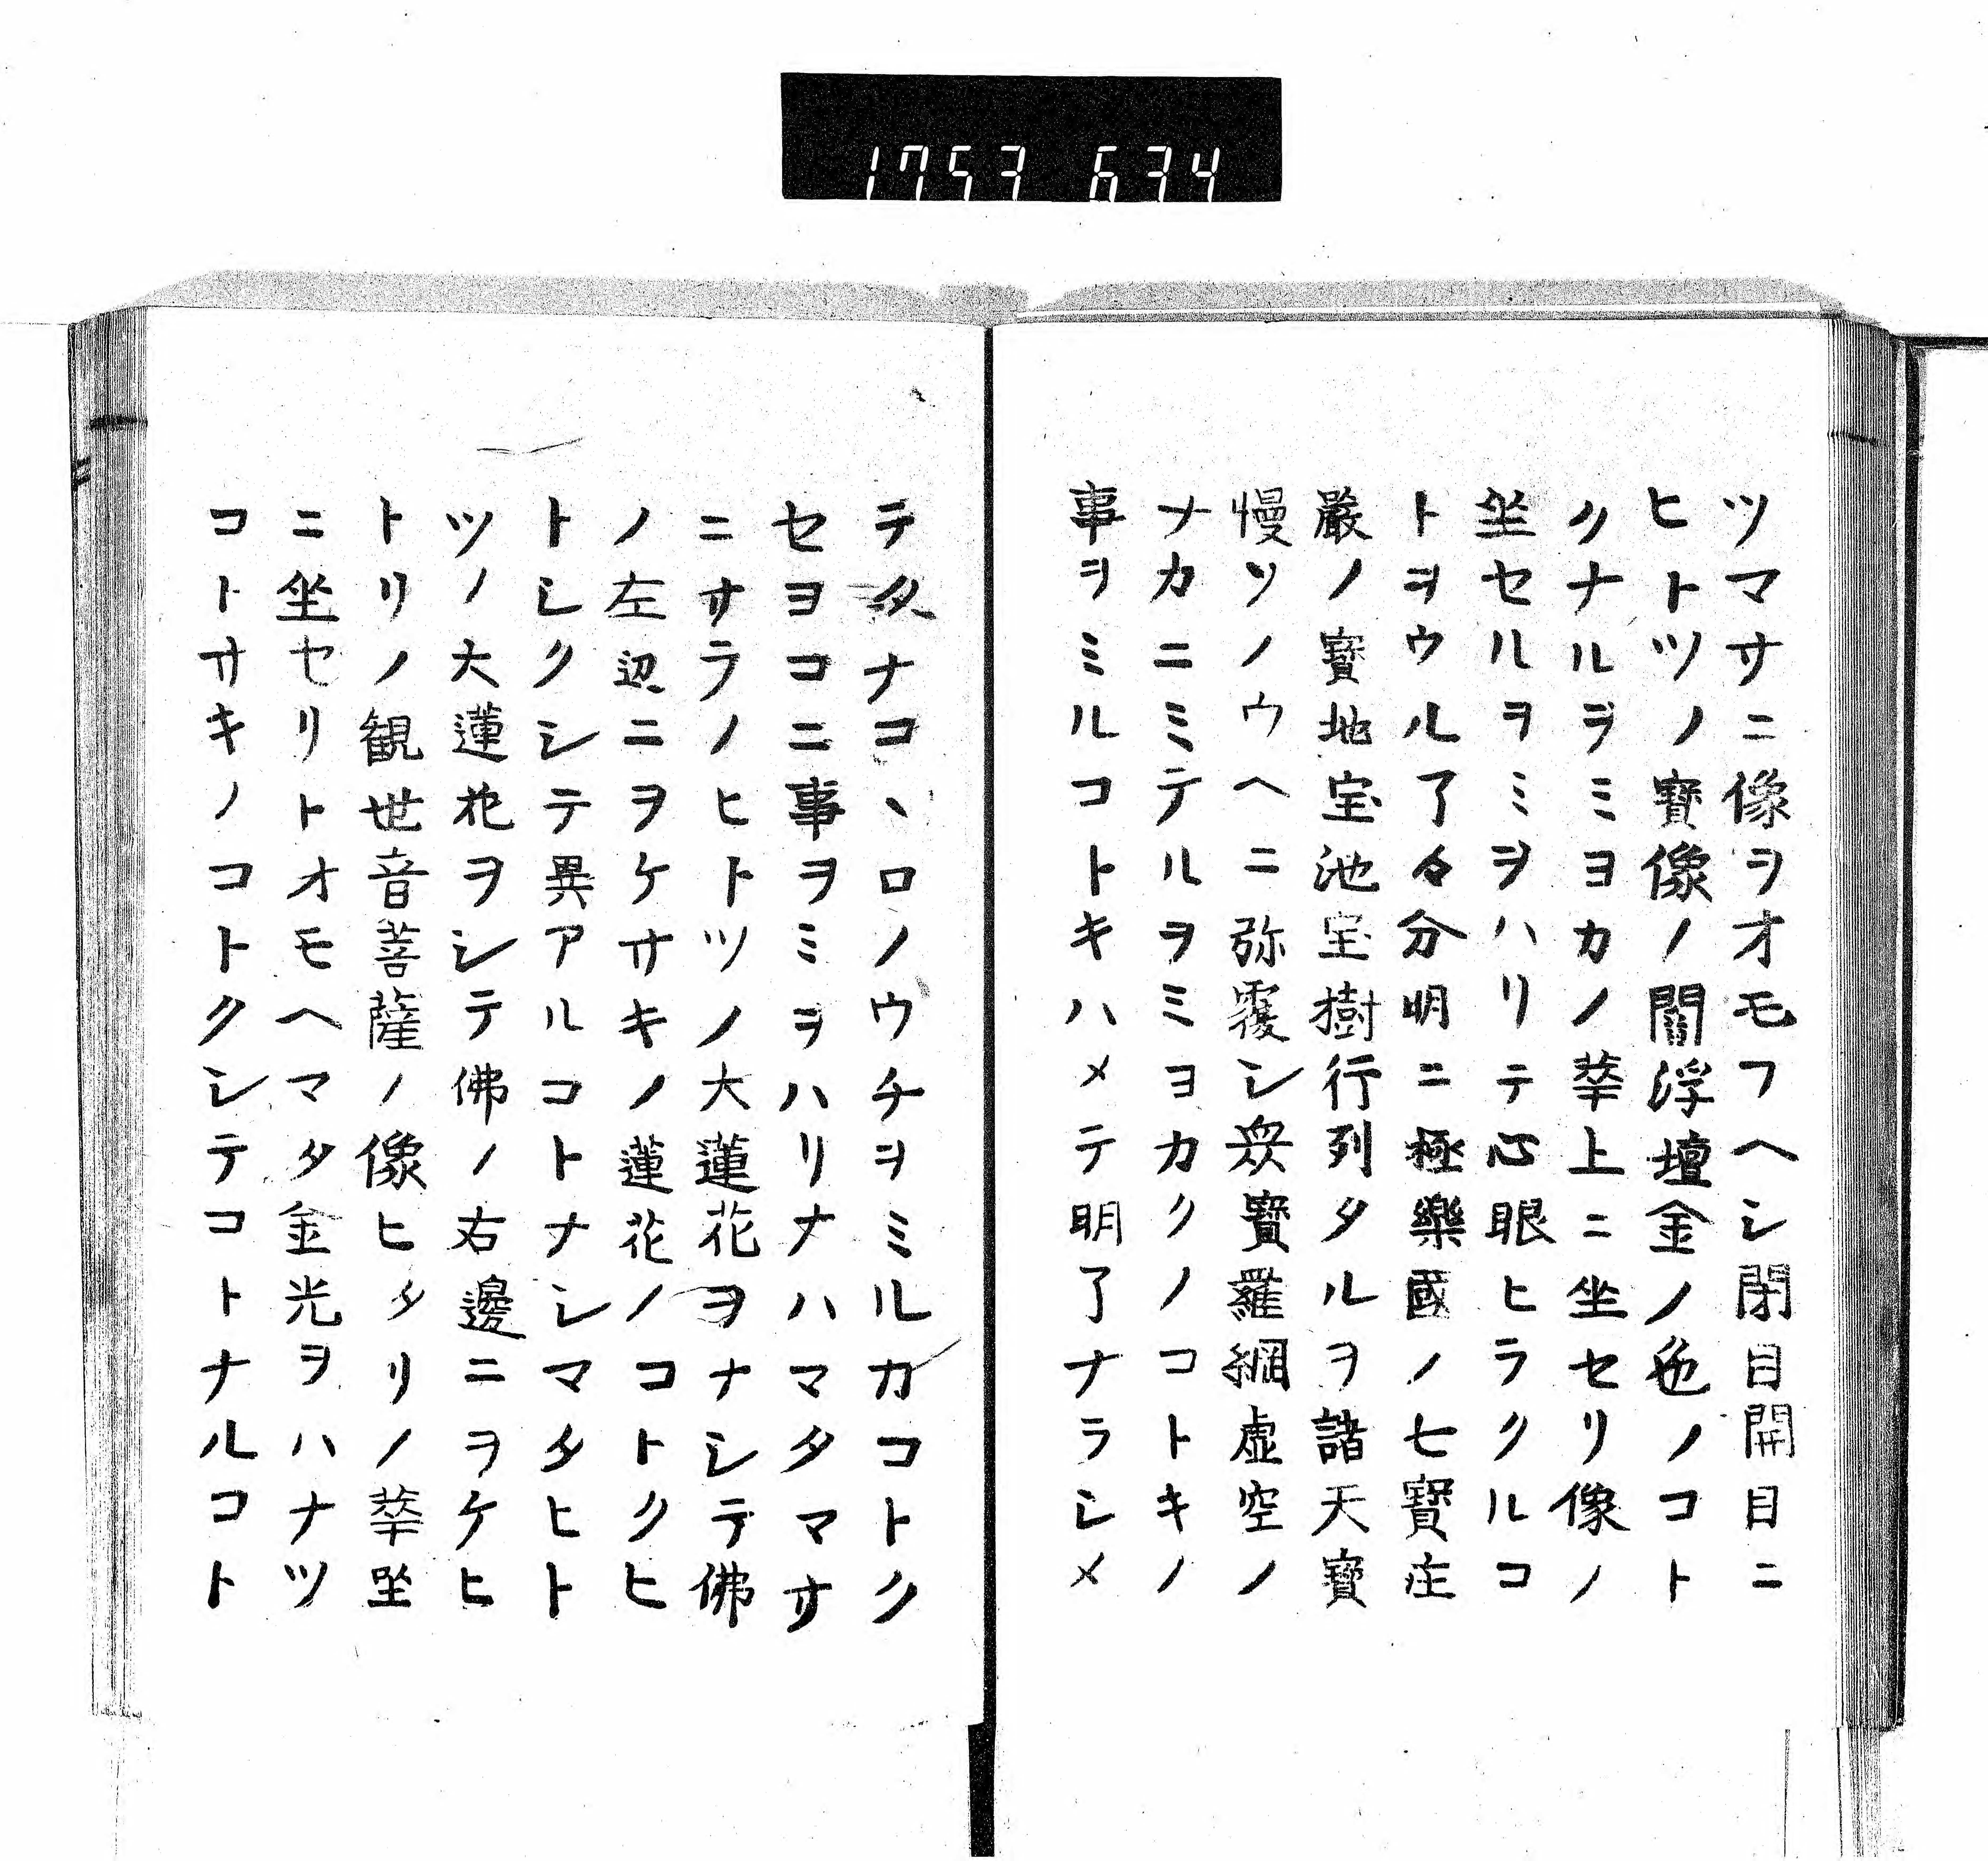 1753 634
ツマサニ像ヲオモフヘシ閉目開目ニ
ヒトツノ寳像ノ閻浮壇金ノ色ノコト
クナルヲミヨカノ華上ニ坐セリ像ノ
坐セルヲミヲハリテ心眼ヒラクルコ
トヲウル了々分明ニ極樂國ノ七寳庄
嚴ノ寳地宝池宝樹行列タルヲ諸天寳
慢ソノウヘニ弥覆シ衆寳羅網虚空ノ
ナカニミテルヲミヨカクノコトキノ
事ヲミルコトキハメテ明了ナラシメ
テタナコヽロノウチヲミルカコトク
セヨコニ事ヲミヲハリナハマタマサ
ニサラノヒトツノ大蓮花ヲナシテ佛
ノ左辺ニヲケサキノ蓮花ノコトクヒ
トシクシテ異アルコトナシマタヒト
ツノ大蓮花ヲシテ佛ノ右邊ニヲケヒ
トリノ観世音菩薩ノ像ヒタリノ華坐
ニ坐セリトオモヘマタ金光ヲハナツ
コトサキノコトクシテコトナルコト